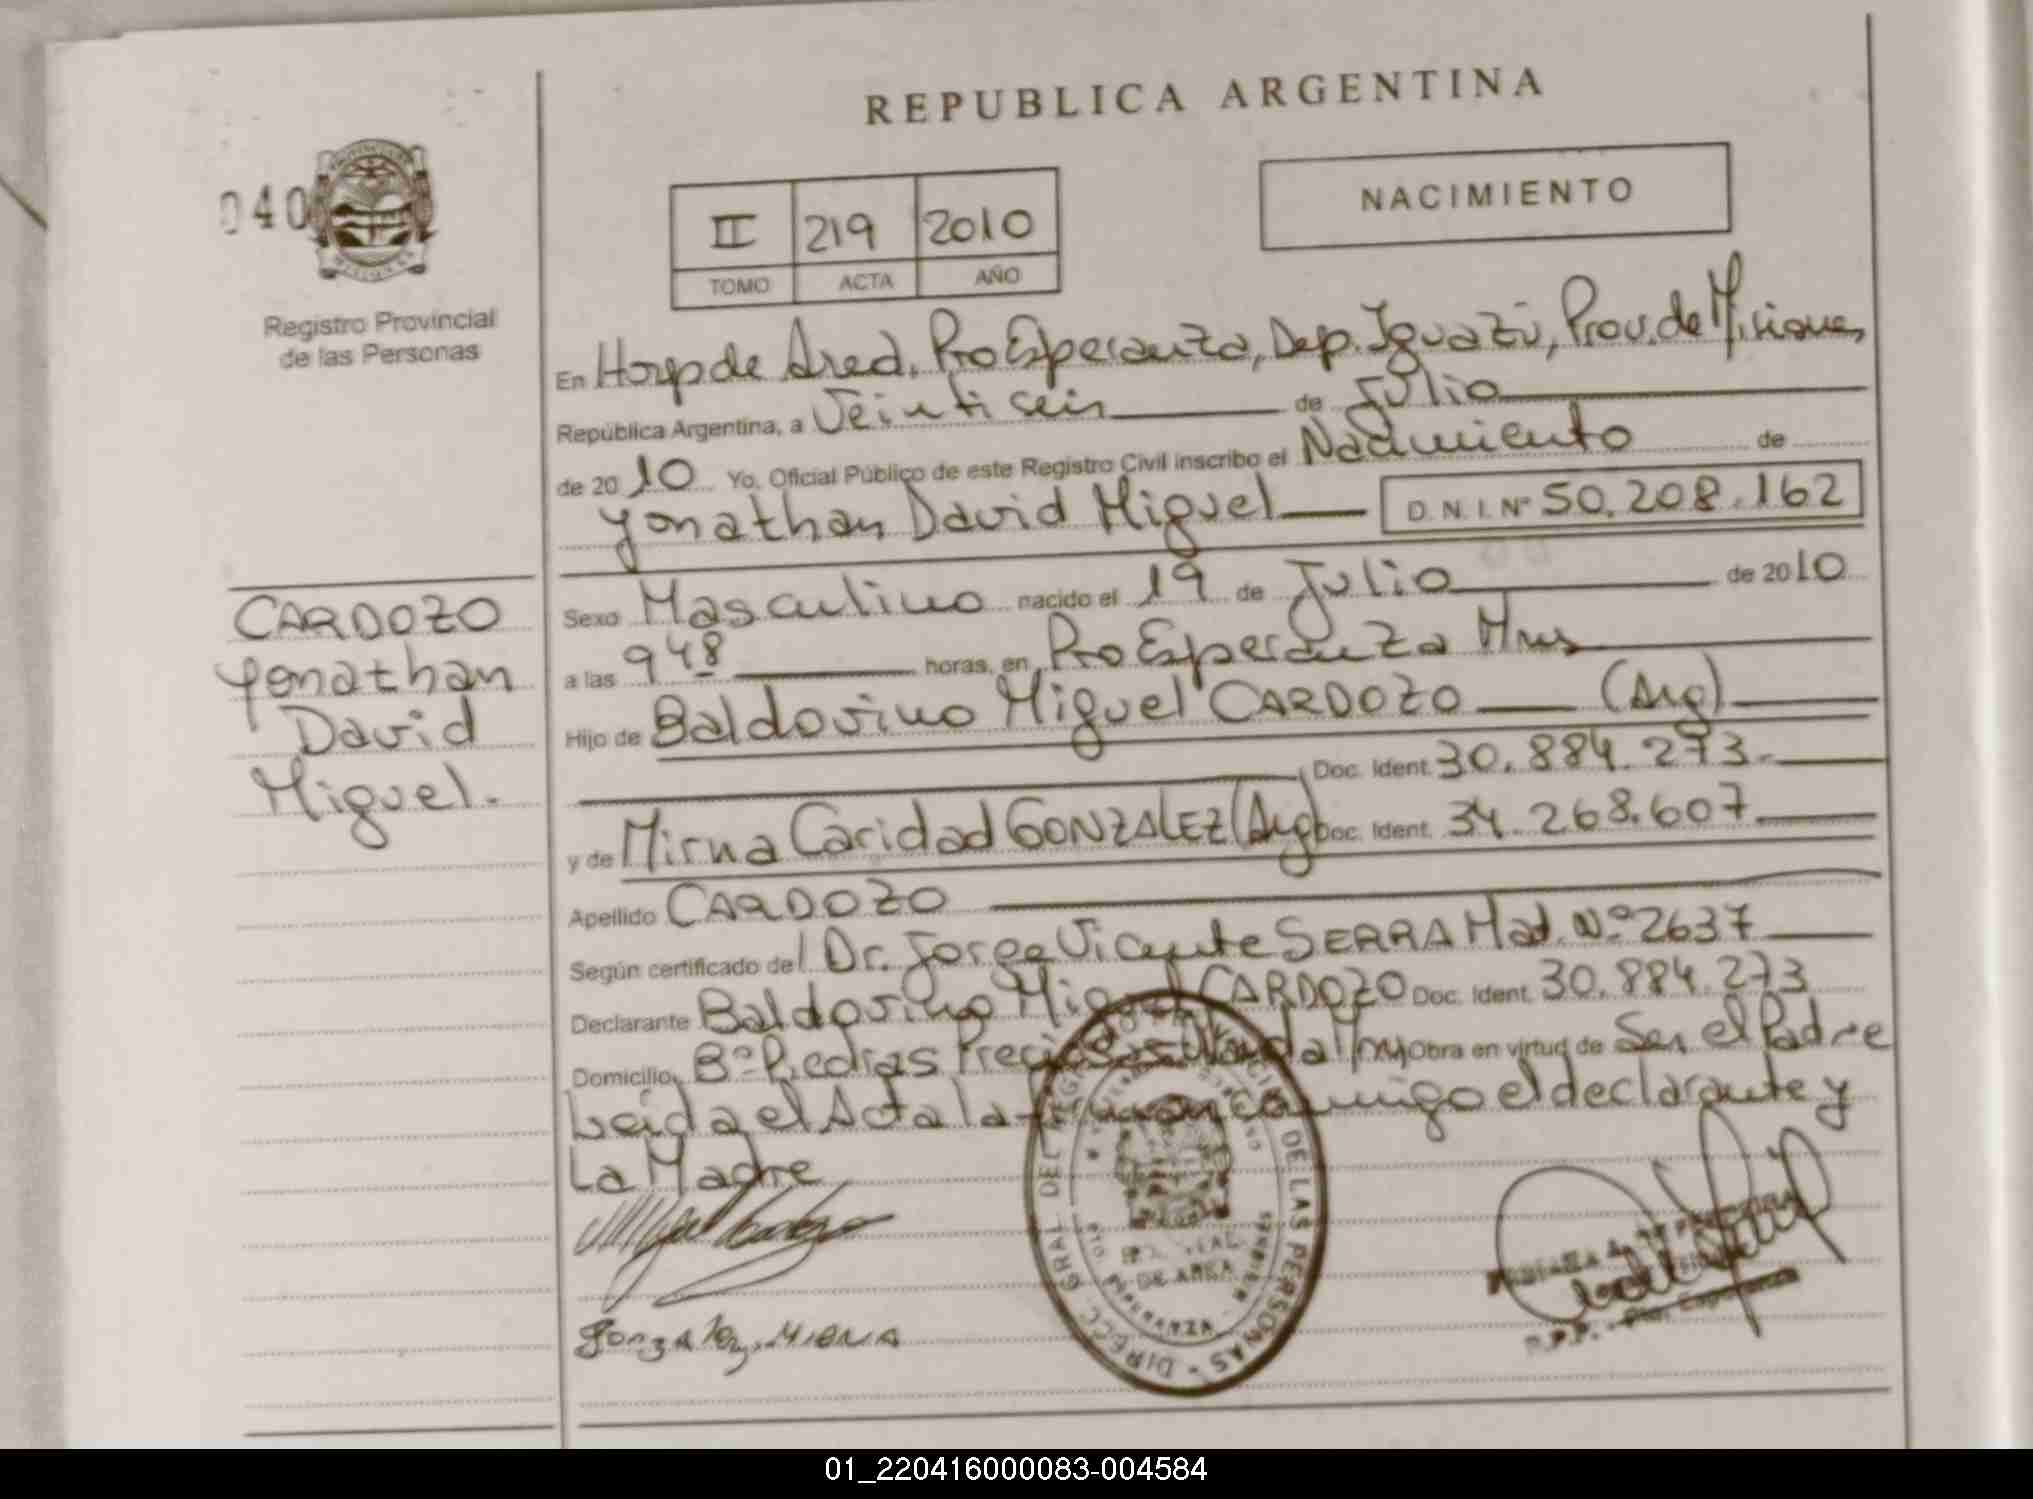 REPUBLICA ARGENTINA
040
Registro Provincial
de las Personas
II 219 2010
TOMO ACTA AÑO
NACIMIENTO
En Hosp de Area, Pto Esperanza, Dep. Iguazú, Prov. de Misiones,
República Argentina, a Veintiseis de Julio
de 2010 Yo, Oficial Público de este Registro Civil inscribo el Nacimiento de
Yonathan David Miguel D.N.I.Nº 50.208.162
Sexo Masculino nacido el 19 de Julio de 2010
a las 9 48 horas, en Pto Esperanza Mnes
Hijo de Baldovino Miguel CARDOZO (Arg)
Doc. Ident. 30.884.273.-
y de Mirna Caridad GONZALEZ (Arg) Doc. Ident. 34.268.607
Apellido CARDOZO
Según certificado del Dr. Jorge Vicente SERRA Mat. Nº 2637
Declarante Baldovino Miguel CARDOZO Doc. Ident. 30.884.273
Domicilio Bº Piedras Preciosas Obra en virtud de Ser el Padre
Leida el Acta la firman conmigo el declarante y
La Madre
CARDOZO
Yonathan
David
Miguel.
Gonzalez, MIRNA
DIRECC. GRAL. DEL DE LAS PERSONAS
DE AREA
01_220416000083-004584